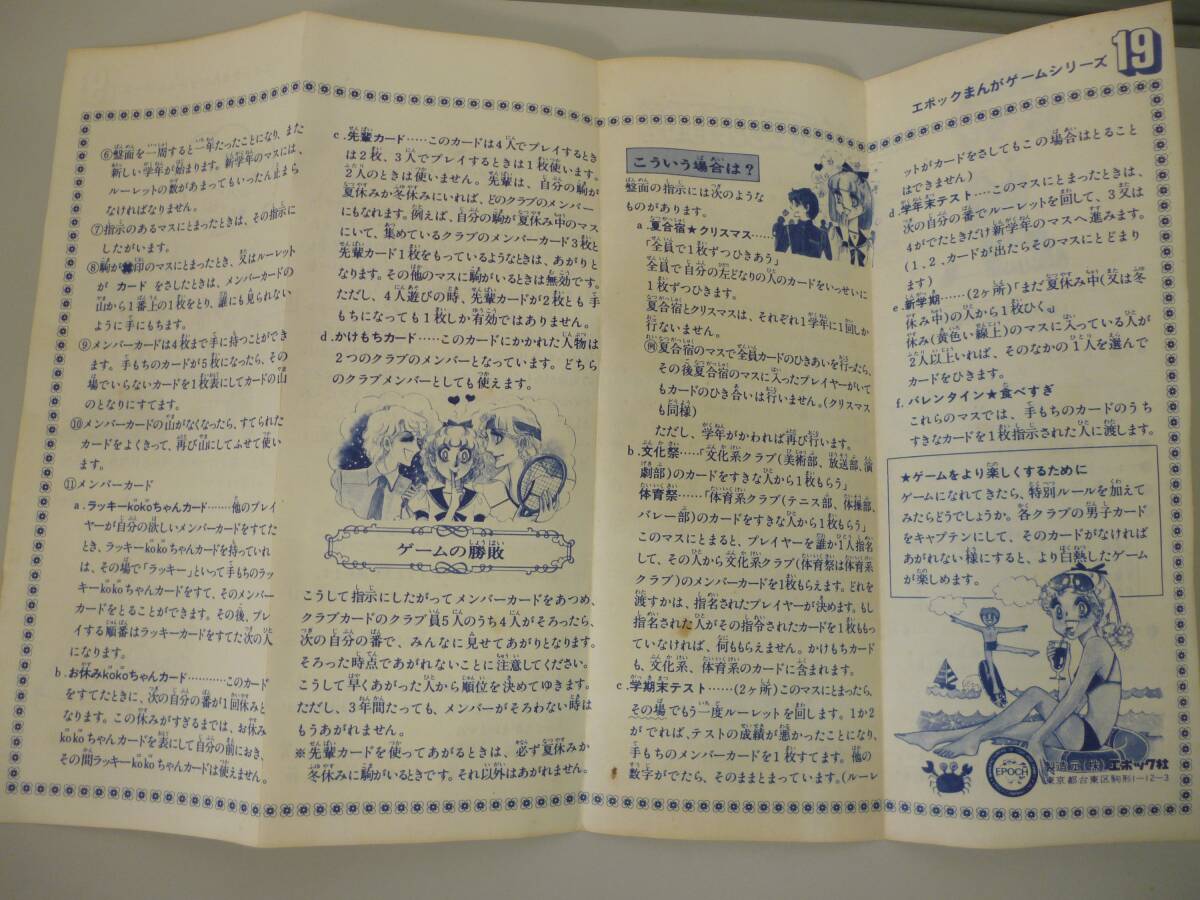 エポックまんがゲームシリーズ 19
⑥盤面を一周すると一年たったことになり、また
新しい学年が始まります。新学年のマスには、
ルーレットの数があまってもいったん止まら
なければなりません。
⑦指示のあるマスにとまったときは、その指示に
したがいます。
⑧駒が✖印のマスにとまったとき、又はルーレット
が カード をさしたときは、メンバーカードの
山から1番上の1枚をとり、誰にも見られない
ように手にもちます。
⑨メンバーカードは4枚まで手に持つことができ
ます。手もちのカードが5枚になったら、その
場でいらないカードを1枚表にしてカードの山
のとなりにすてます。
⑩メンバーカードの山がなくなったら、すてられた
カードをよくきって、再び山にしてふせて使い
ます。
⑪メンバーカード
a.ラッキーkokoちゃんカード……他のプレイ
ヤーが自分の欲しいメンバーカードをすてた
とき、ラッキーkokoちゃんカードを持っていれ
ば、その場で「ラッキー」といって手もちのラッ
キーkokoちゃんカードをすて、そのメンバー
カードをとることができます。その後、プレ
イする順番はラッキーカードをすてた次の人
になります。
b.お休みkokoちゃんカード…………このカード
をすてたときに、次の自分の番が1回休みと
なります。この休みがすぎるまでは、お休み
kokoちゃんカードを表にして自分の前におき、
その間ラッキーkokoちゃんカードは使えません。
c.先輩カード……このカードは4人でプレイするとき
は2枚、3人でプレイするときは1枚使います。
2人のときは使いません。先輩は、自分の駒が
夏休みか冬休みにいれば、どのクラブのメンバー
にもなれます。例えば、自分の駒が夏休み中のマス
にいて、集めているクラブのメンバーカード3枚と
先輩カード1枚をもっているようなときは、あがりと
なります。その他のマスに駒がいるときは無効です。
ただし、4人遊びの時、先輩カードが2枚とも手
もちになっても1枚しか有効ではありません。
d.かけもちカード……このカードにかかれた人物は
2つのクラブのメンバーとなっています。どちら
のクラブメンバーとしても使えます。
ゲームの勝敗
こうして指示にしたがってメンバーカードをあつめ、
クラブカードのクラブ員5人のうち4人がそろったら、
次の自分の番で、みんなに見せてあがりとなります。
そろった時点であがれないことに注意してください。
こうして早くあがった人から順位を決めてゆきます。
ただし、3年間たっても、メンバーがそろわない時は
もうあがれません。
※先輩カードを使ってあがるときは、必ず夏休みか
冬休みに駒がいるときです。それ以外はあがれません。
こういう場合は?
盤面の指示には次のような
ものがあります。
a.夏合宿★クリスマス……
「全員で1枚ずつひきあう」
全員で自分の左どなりの人のカードをいっせいに
1枚ずつひきます。
夏合宿とクリスマスは、それぞれ1学年に1回しか
行ないません。
例夏合宿のマスで全員カードのひきあいを行ったら、
その後夏合宿のマスに入ったプレイヤーがいて
もカードのひき合いは行いません。(クリスマス
も同様)
ただし、学年がかわれば再び行います。
b.文化祭……「文化系クラブ(美術部、放送部、演
劇部)のカードをすきな人から1枚もらう」
体育祭……「体育系クラブ(テニス部、体操部、
バレー部)のカードをすきな人から1枚もらう」
このマスにとまると、プレイヤーを誰か1人指名
して、その人から文化系クラブ(体育祭は体育系
クラブ)のメンバーカードを1枚もらえます。どれを
渡すかは、指名されたプレイヤーが決めます。もし
指名された人がその指令されたカードを1枚ももっ
ていなければ、何ももらえません。かけもちカード
も、文化系、体育系のカードに含まれます。
c.学期末テスト……(2ヶ所)このマスにとまったら、
その場でもう一度ルーレットを回します。1か2
がでれば、テストの成績が悪かったことになり、
手もちのメンバーカードを1枚すてます。他の
数字がでたら、そのままとまっています。(ルーレ
ットがカードをさしてもこの場合はとること
はできません)
d.学年末テスト……このマスにとまったときは、
次の自分の番でルーレットを回して、3又は
4がでたときだけ新学年のマスへ進みます。
(1、2、カードが出たらそのマスにとどまり
ます)
e.新学期……(2ヶ所)「まだ夏休み中(又は冬
休み中)の人から1枚ひく。」
休み(黄色い線上)のマスに入っている人が
2人以上いれば、そのなかの1人を選んで
カードをひきます。
f.バレンタイン★食べすぎ
これらのマスでは、手もちのカードのうち
すきなカードを1枚指示された人に渡します。
★ゲームをより楽しくするために
ゲームになれてきたら、特別ルールを加えて
みたらどうでしょうか。各クラブの男子カード
をキャプテンにして、そのカードがなければ
あがれない様にすると、より白熱したゲーム
が楽しめます。
EPOCH
製造元(株)エポック社
東京都台東区駒形1-12-3